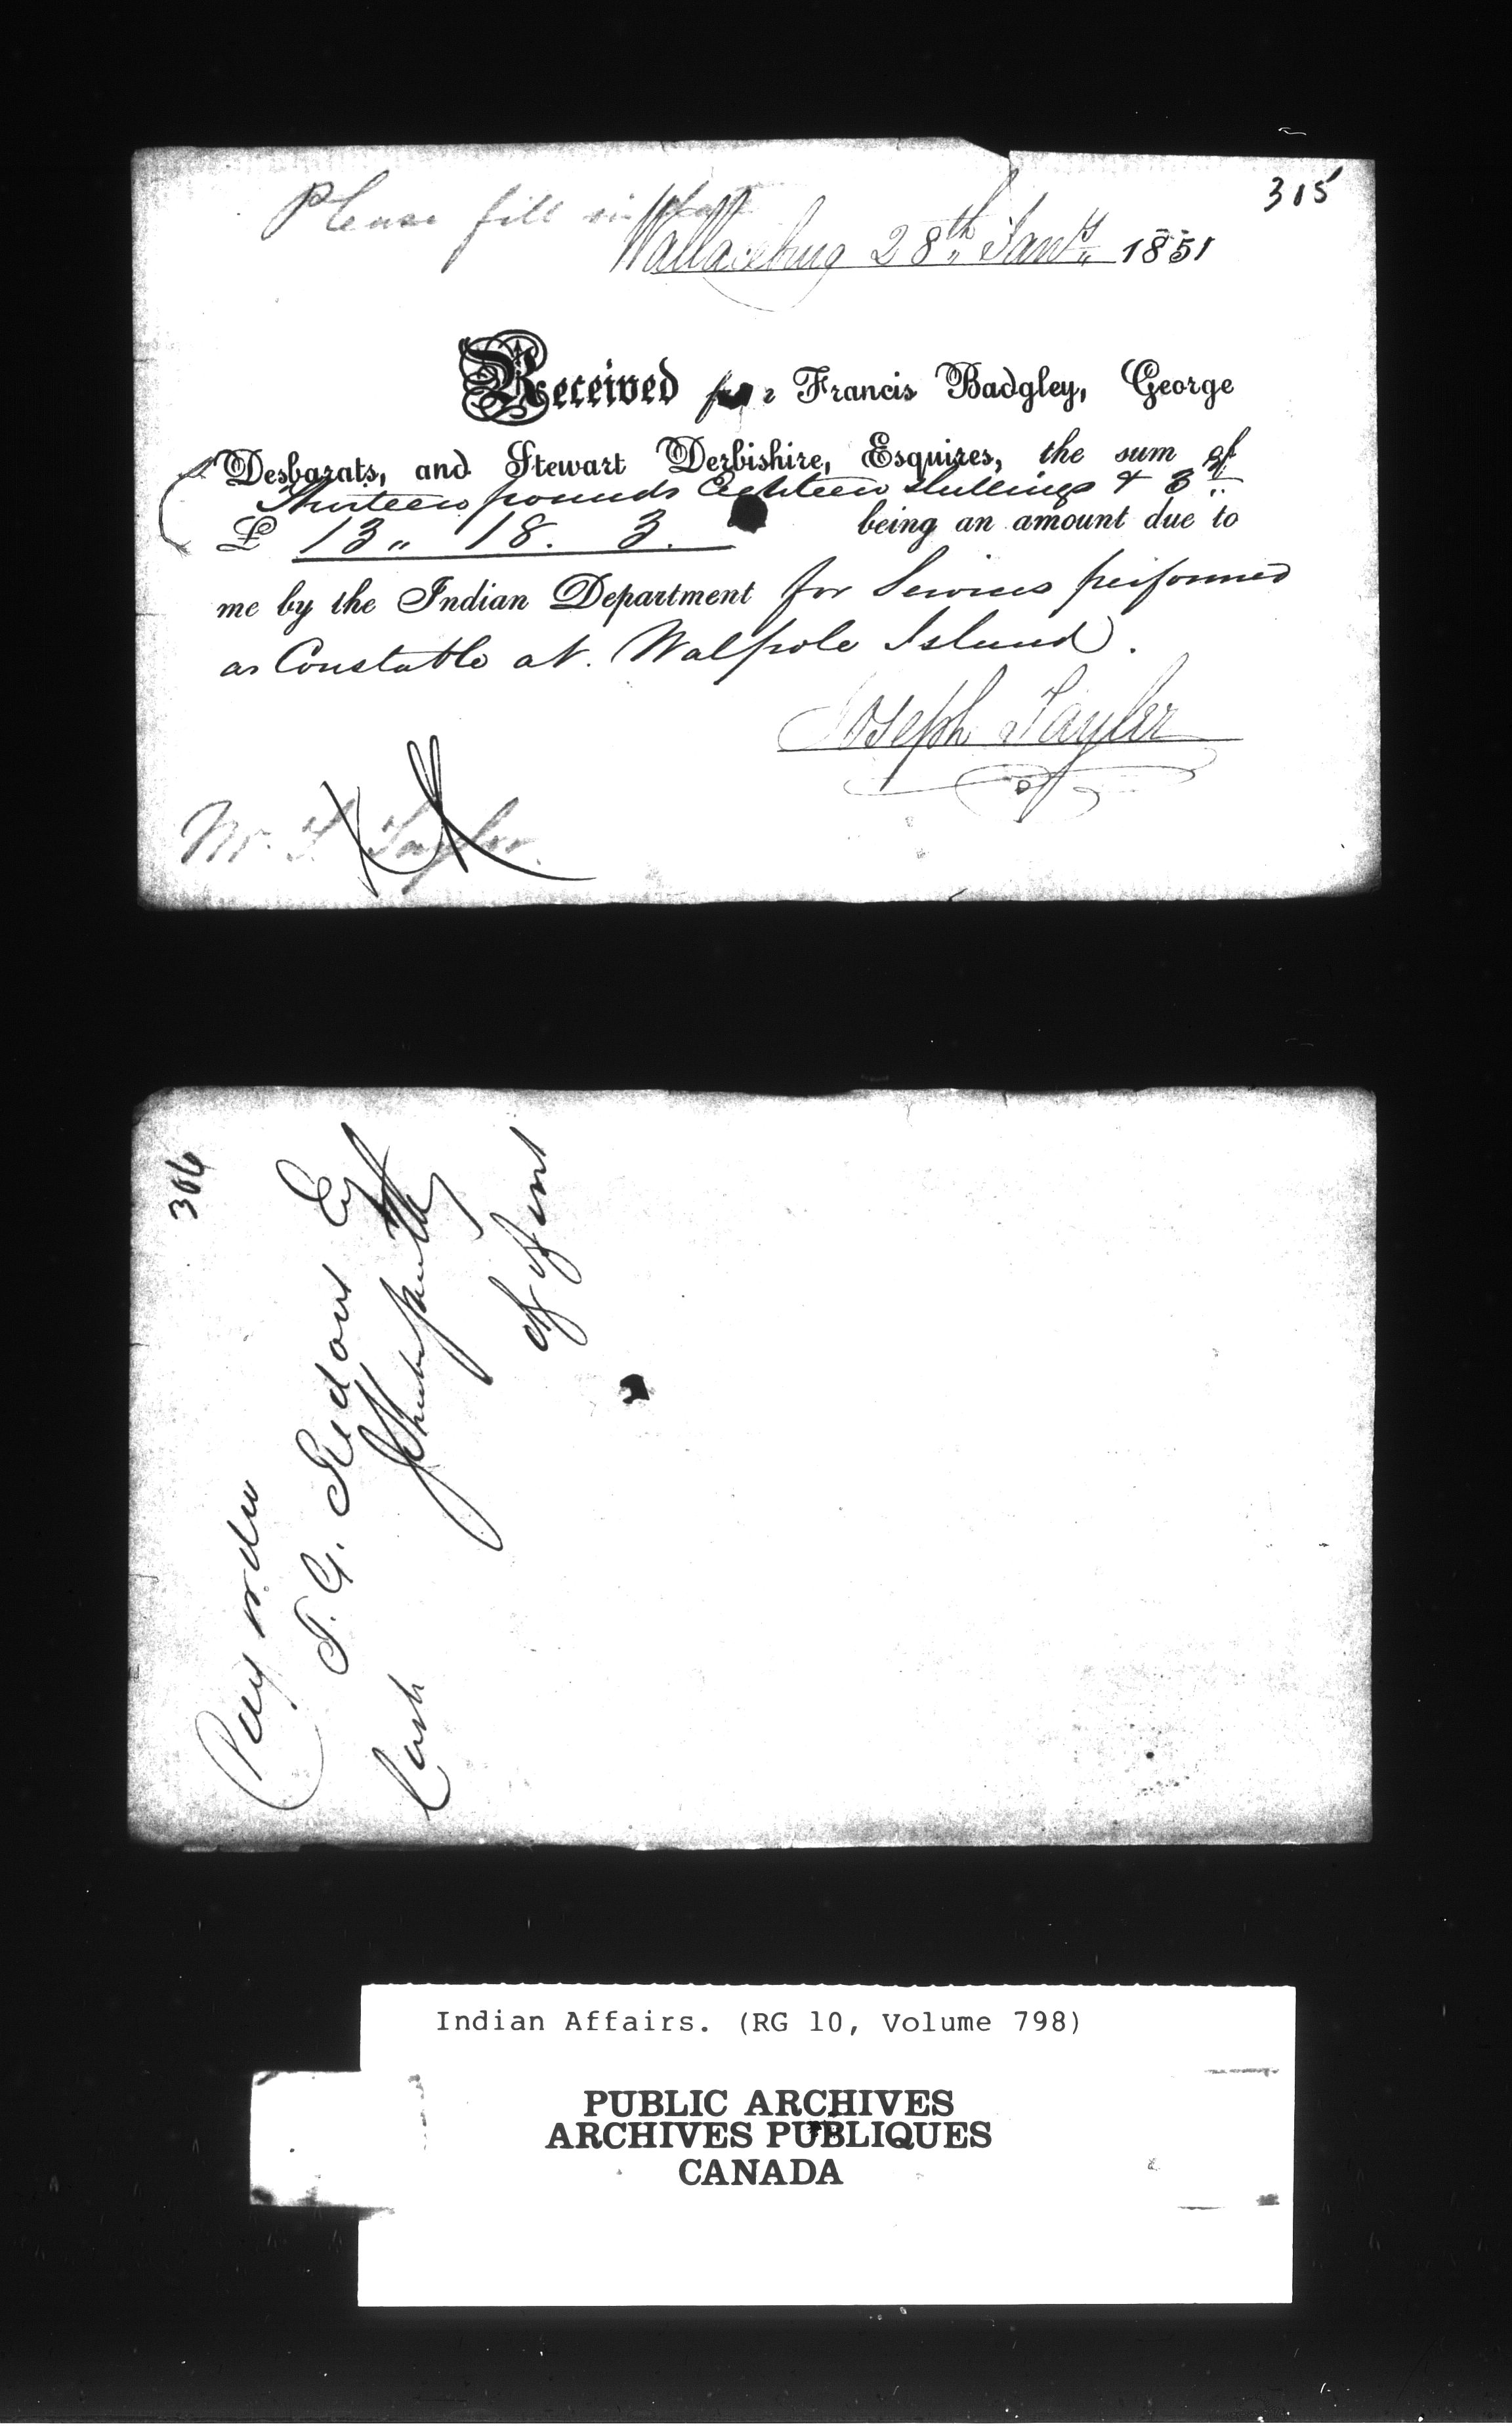 305
Please fill in
Wallaceburg 28th Jany 1851
Received from Francis Badgley, George
Desbarats, and Stewart Derbishire, Esquires, the sum of
Thirteen pounds Eighteen shillings & 3d
£ 13 " 18. 3. being an amount due to
me by the Indian Department for Services performed
as Constable at Walpole Island.
Joseph Tayler
Mr. J. Taylor.
306
Pay order
T. G. Ridout Esq
Cash
Indian Affairs. (RG 10, Volume 798)
PUBLIC ARCHIVES
ARCHIVES PUBLIQUES
CANADA